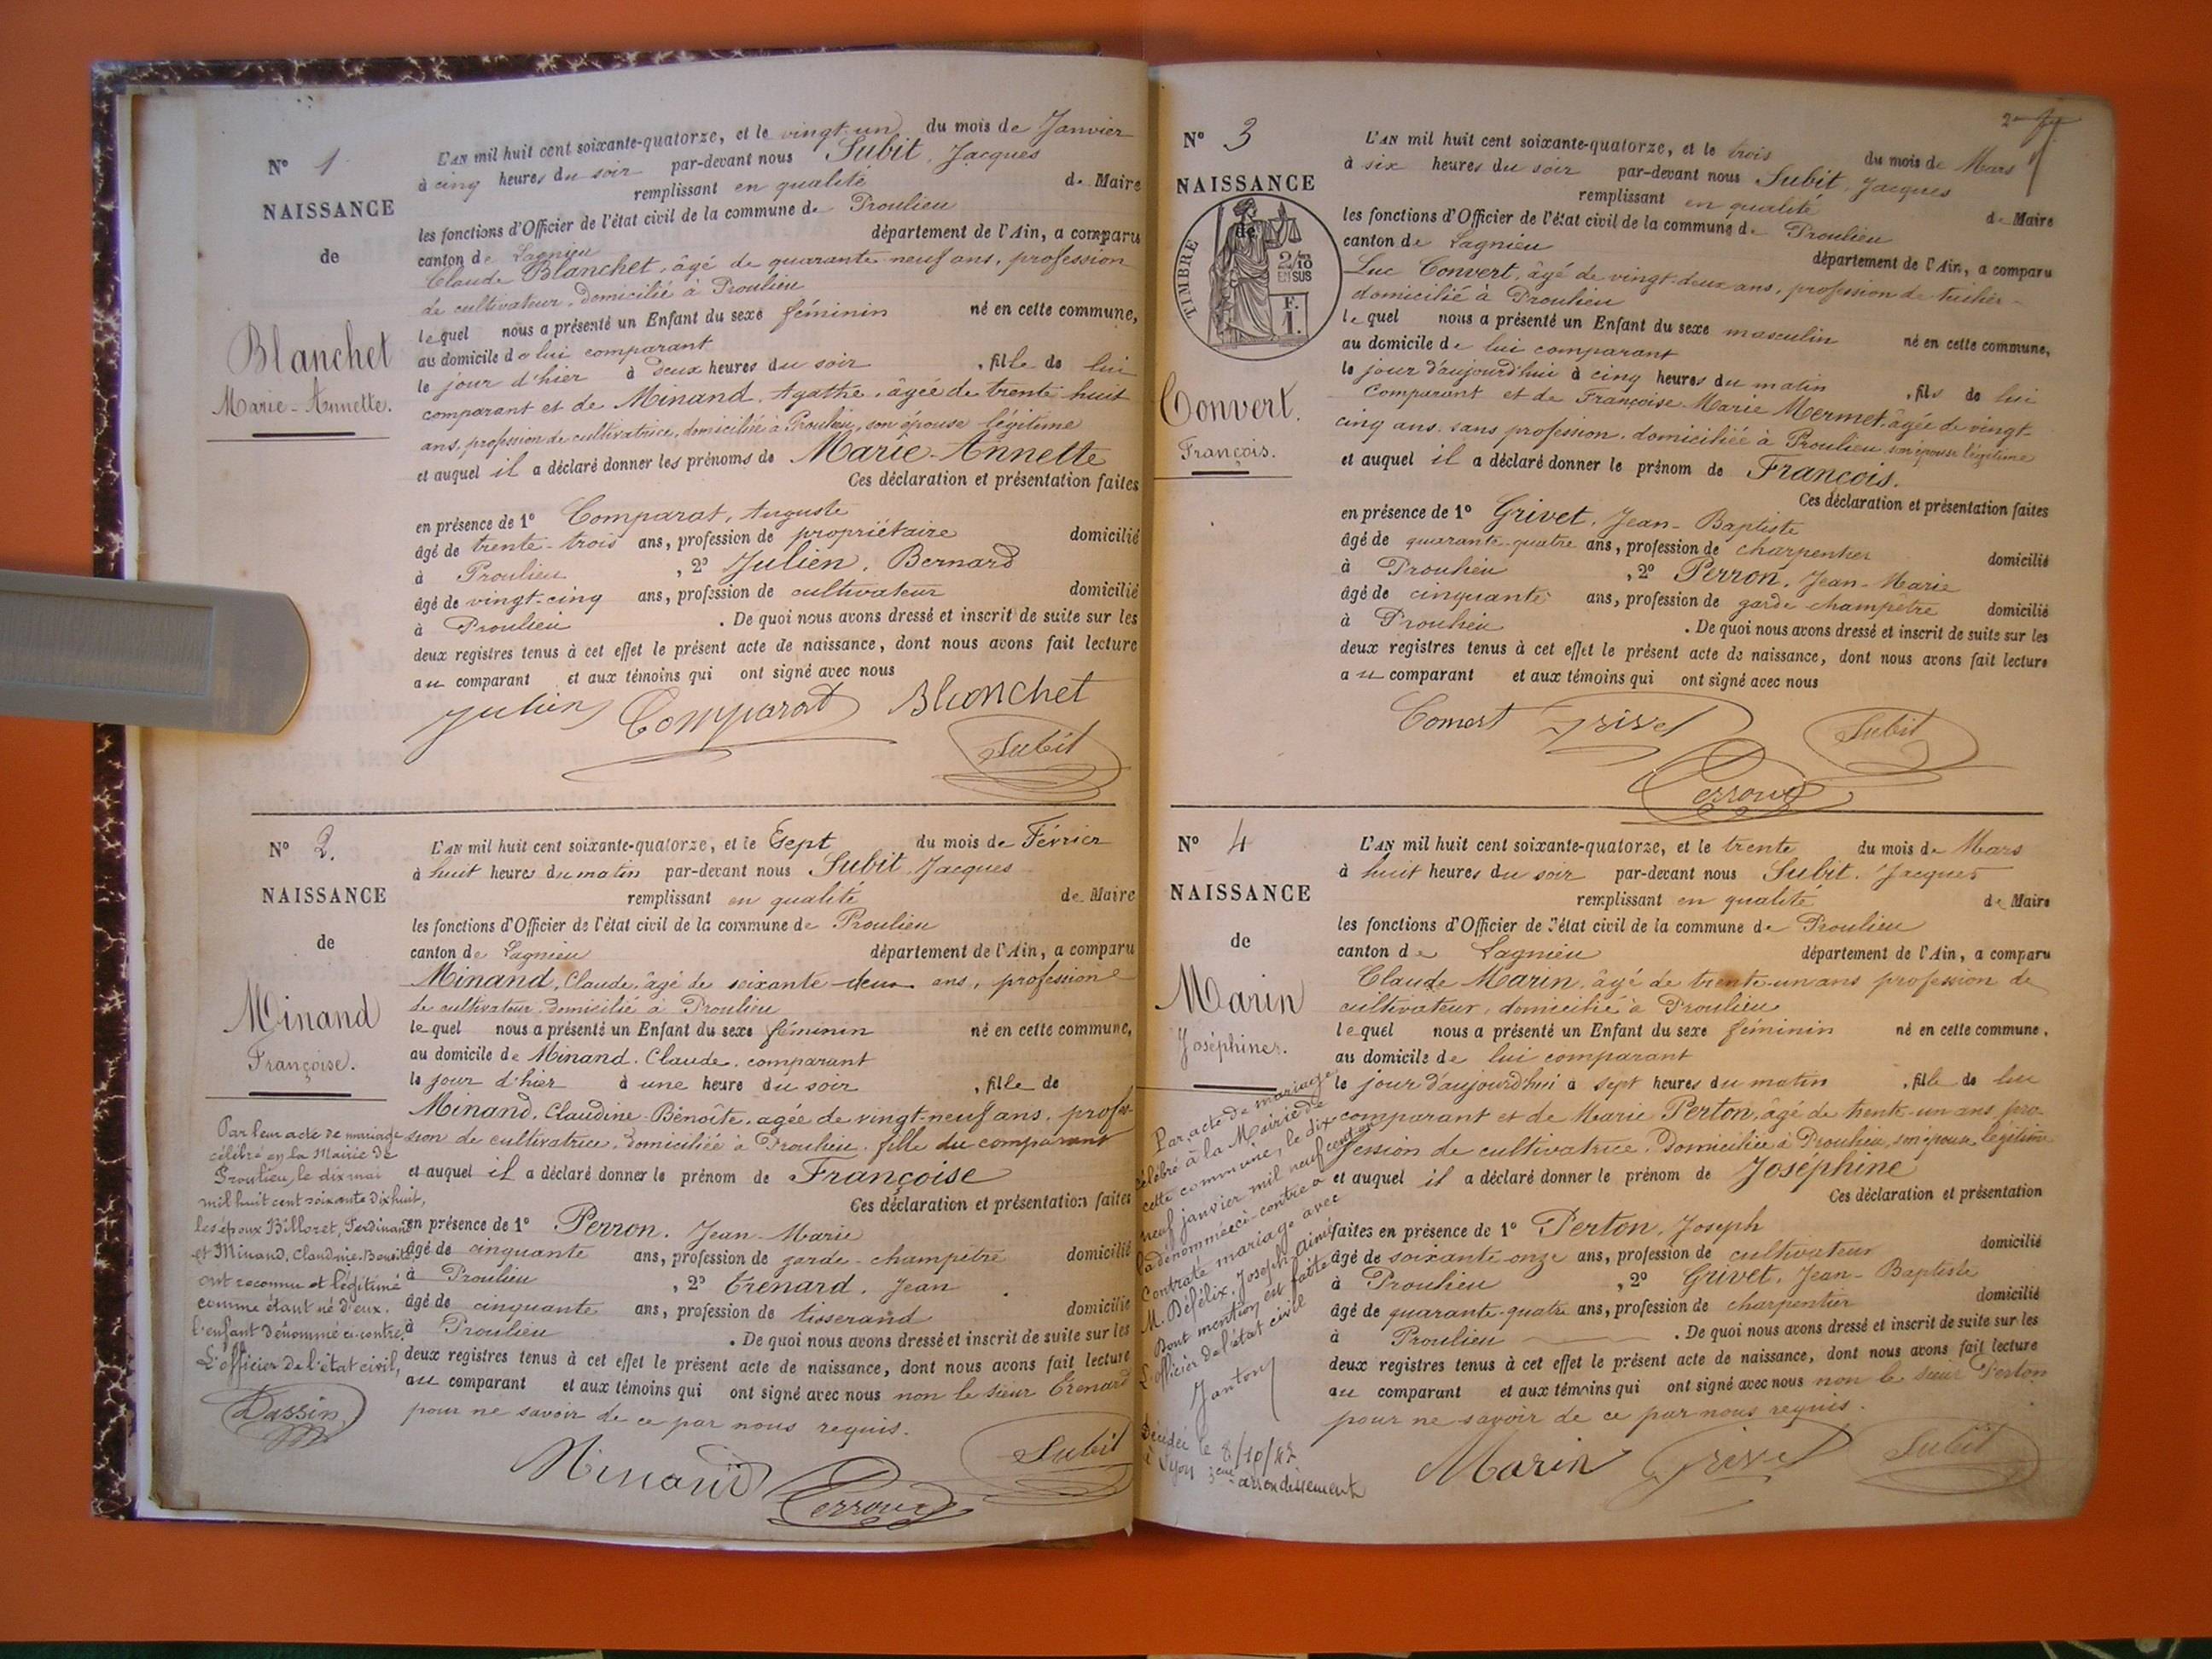 N° 1
NAISSANCE
de
Blanchet
Marie-Annette.
L'AN mil huit cent soixante-quatorze, et le vingt-un du mois de Janvier
à cinq heures du soir par-devant nous Subit, Jacques
remplissant en qualité de Maire
les fonctions d'Officier de l'état civil de la commune de Proulieu
canton de Lagnieu département de l'Ain, a comparu
Claude Blanchet, âgé de quarante-neuf ans, profession
de cultivateur, domicilié à Proulieu
lequel nous a présenté un Enfant du sexe féminin né en cette commune,
au domicile de lui comparant
le jour d'hier à deux heures du soir , fille de lui
comparant et de Minand, Agathe, âgée de trente-huit
ans, profession de cultivatrice, domiciliée à Proulieu, son épouse légitime
et auquel il a déclaré donner les prénoms de Marie-Annette
Ces déclaration et présentation faites
en présence de 1° Comparat, Auguste
âgé de trente-trois ans, profession de propriétaire domicilié
à Proulieu , 2° Julien, Bernard
âgé de vingt-cinq ans, profession de cultivateur domicilié
à Proulieu . De quoi nous avons dressé et inscrit de suite sur les
deux registres tenus à cet effet le présent acte de naissance, dont nous avons fait lecture
au comparant et aux témoins qui ont signé avec nous
Julien Comparat Blanchet
Subit
N° 2.
NAISSANCE
de
Minand
Françoise.
Par leur acte de mariage
célébré en la Mairie de
Proulieu, le dix mai
mil huit cent soixante dix huit,
les époux Billoret, Ferdinand
et Minand, Claudine-Benoite,
ont reconnu et légitimé
comme étant né d'eux,
l'enfant dénommé ci-contre.
L'officier de l'état civil,
Dassin
L'AN mil huit cent soixante-quatorze, et le Sept du mois de Février
à huit heures du matin par-devant nous Subit, Jacques
remplissant en qualité de Maire
les fonctions d'Officier de l'état civil de la commune de Proulieu
canton de Lagnieu département de l'Ain, a comparu
Minand, Claude, âgé de soixante-deux ans, profession
de cultivateur, domicilié à Proulieu
lequel nous a présenté un Enfant du sexe féminin né en cette commune,
au domicile de Minand, Claude, comparant
le jour d'hier à une heure du soir , fille de
Minand, Claudine-Benoîte, agée de vingt-neuf ans, profes-
sion de cultivatrice, domiciliée à Proulieu, fille du comparant
et auquel il a déclaré donner le prénom de Françoise
Ces déclaration et présentation faites
en présence de 1° Perron, Jean-Marie
âgé de cinquante ans, profession de garde-champêtre domicilié
à Proulieu , 2° Trenard, Jean
âgé de cinquante ans, profession de tisserand domicilié
à Proulieu . De quoi nous avons dressé et inscrit de suite sur les
deux registres tenus à cet effet le présent acte de naissance, dont nous avons fait lecture
au comparant et aux témoins qui ont signé avec nous non le sieur Trenard
pour ne savoir de ce par nous requis.
Minand Perron Subit
2
N° 3
NAISSANCE
de
TIMBRE
2/10
EN SUS
F.
1.
Convert.
François.
L'AN mil huit cent soixante-quatorze, et le trois du mois de Mars
à six heures du soir par-devant nous Subit, Jacques
remplissant en qualité de Maire
les fonctions d'Officier de l'état civil de la commune de Proulieu
canton de Lagnieu département de l'Ain, a comparu
Luc Convert, âgé de vingt-deux ans, profession de
domicilié à Proulieu
lequel nous a présenté un Enfant du sexe masculin né en cette commune,
au domicile de lui comparant
le jour d'aujourd'hui à cinq heures du matin , fils de lui
comparant et de Françoise Marie Mermet, âgée de vingt-
cinq ans, sans profession, domiciliée à Proulieu son épouse légitime
et auquel il a déclaré donner le prénom de François.
Ces déclaration et présentation faites
en présence de 1° Grivet, Jean-Baptiste
âgé de quarante-quatre ans, profession de charpentier domicilié
à Proulieu , 2° Perron, Jean-Marie
âgé de cinquante ans, profession de garde champêtre domicilié
à Proulieu . De quoi nous avons dressé et inscrit de suite sur les
deux registres tenus à cet effet le présent acte de naissance, dont nous avons fait lecture
au comparant et aux témoins qui ont signé avec nous
Convert Grivet Subit
Perron
N° 4
NAISSANCE
de
Marin
Joséphine.
Par acte de mariage
célébré à la Mairie de
cette commune, le dix
neuf janvier mil neuf cent
la dénommée ci-contre a
contracté mariage avec
M. Défélix, Joseph Aimé
Dont mention est faite
L'officier de l'état civil
Janton
Décédée le 8/10/42
à Lyon 3eme arrondissement
L'AN mil huit cent soixante-quatorze, et le trente du mois de Mars
à huit heures du soir par-devant nous Subit, Jacques
remplissant en qualité de Maire
les fonctions d'Officier de l'état civil de la commune de Proulieu
canton de Lagnieu département de l'Ain, a comparu
Claude Marin, âgé de trente-un ans profession de
cultivateur, domicilié à Proulieu
lequel nous a présenté un Enfant du sexe féminin né en cette commune,
au domicile de lui comparant
le jour d'aujourd'hui à sept heures du matin , fille de lui
comparant et de Marie Perton, âgé de trente-un ans pro-
fession de cultivatrice, domiciliée à Proulieu, son épouse légitime
et auquel il a déclaré donner le prénom de Joséphine
Ces déclaration et présentation
faites en présence de 1° Perton, Joseph
âgé de soixante-onze ans, profession de cultivateur domicilié
à Proulieu , 2° Grivet, Jean-Baptiste
âgé de quarante-quatre ans, profession de charpentier domicilié
à Proulieu . De quoi nous avons dressé et inscrit de suite sur les
deux registres tenus à cet effet le présent acte de naissance, dont nous avons fait lecture
au comparant et aux témoins qui ont signé avec nous non le sieur Perton
pour ne savoir de ce par nous requis.
Marin Grivet Subit